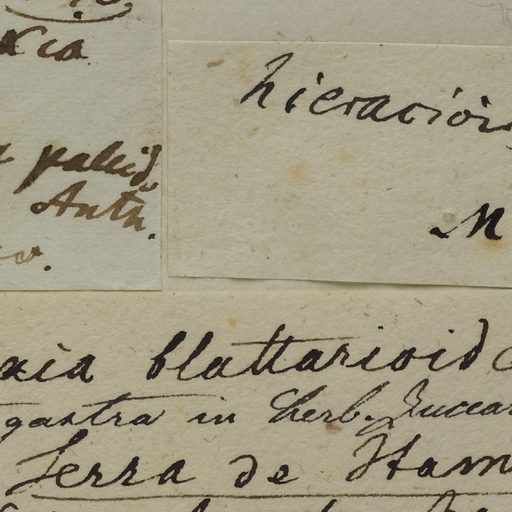 xia
pallid
Antn.
hieracioi
M
xia blattarioid
gastra in herb. Zuccar
Serra de Itam